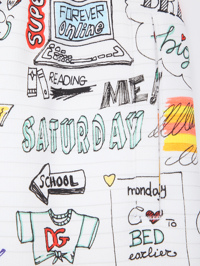 SUPER
FOREVER
online
big
READING
ME!
SATURDAY
SCHOOL
monday
GO
TO
BED
earlier
DG